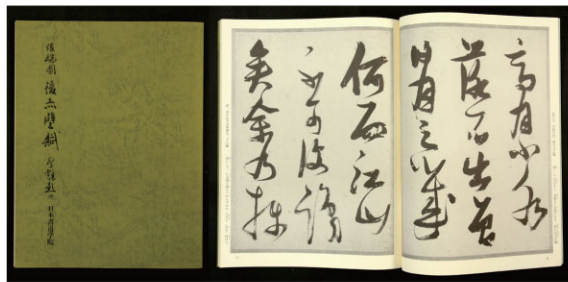 張瑞図 後赤壁賦
日本書道学院
高月小水
落石出曾
日月之幾
何而江山
不可復識
矣余乃攝